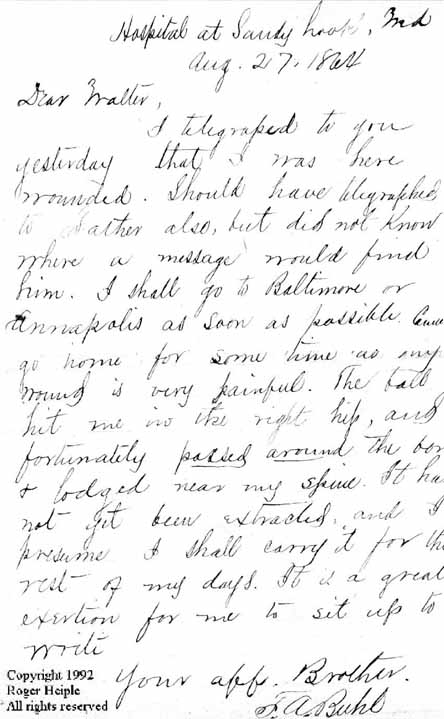 Hospital at Sandy hook, Md
Aug. 27. 1864
Dear Walter,
I telegraped to you
yesterday that I was here
wounded. Should have telegraphed
to Father also, but did not know
where a message would find
him. I shall go to Baltimore or
Annapolis as soon as possible.
go home for some time as my
wound is very painful. The ball
hit me in the right hip, and
fortunately passed around the bon
& lodged near my spine. It has
not yet been extracted, and I
presume I shall carry it for the
rest of my days. It is a great
exertion for me to sit up to
write
Your aff. Brother.
F. A. Buhl
Copyright 1992
Roger Heiple
All rights reserved